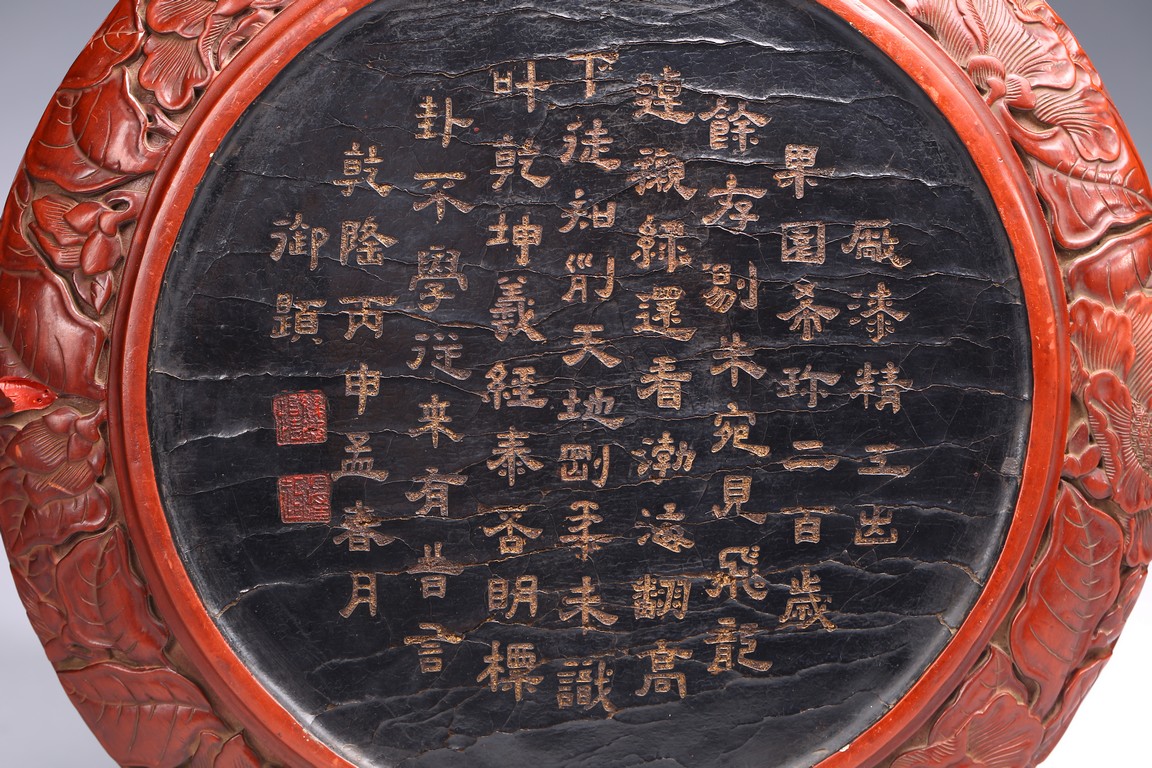 厰漆精工出
果園希珍二百歲
餘存剔朱宛見飛龍
緑還看渤海翻高
下徒知別天地剛柔未識
叶乾坤羲經泰否明標
卦不學從来有昔言
乾隆丙申孟春月
御題